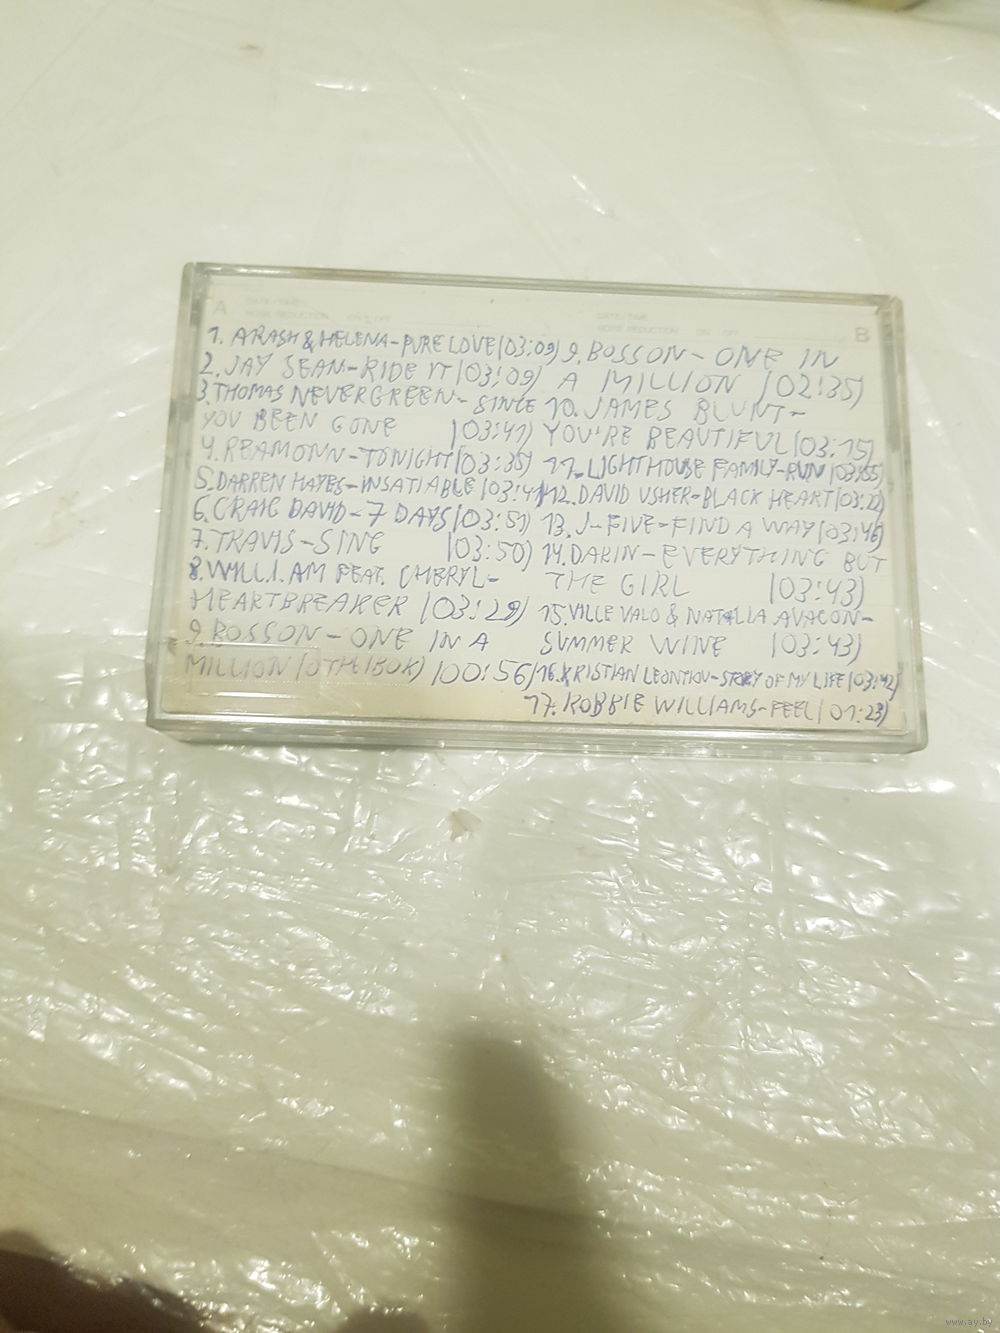 A
DATE / TIME
NOISE REDUCTION ON OFF
1. ARASH & HELENA-PURE LOVE(03:09)
2. JAY SEAN-RIDE IT(03:09)
3. THOMAS NEVERGREEN-SINCE
YOU BEEN GONE (03:41)
4. REAMONN-TONIGHT(03:35)
5. DARREN HAYES-INSATIABLE(03:41)
6. CRAIG DAVID-7 DAYS(03:51)
7. TRAVIS-SING (03:50)
8. WILL.I.AM FEAT. CHERYL-
HEARTBREAKER (03:29)
9. BOSSON-ONE IN A
MILLION (00:56)
B
DATE / TIME
NOISE REDUCTION ON OFF
9. BOSSON-ONE IN
A MILLION (02:35)
10. JAMES BLUNT-
YOU'RE BEAUTIFUL(03:15)
11. LIGHTHOUSE FAMILY-RUN(03:55)
12. DAVID USHER-BLACK HEART(03:22)
13. J-FIVE-FIND A WAY(03:46)
14. DARIN-EVERYTHING BUT
THE GIRL (03:43)
15. VILLE VALO & NATALIA AVACON-
SUMMER WINE (03:43)
16. KRISTIAN LEONTIOU-STORY OF MY LIFE(03:42)
17. ROBBIE WILLIAMS-FEEL(01:23)
www.ay.by